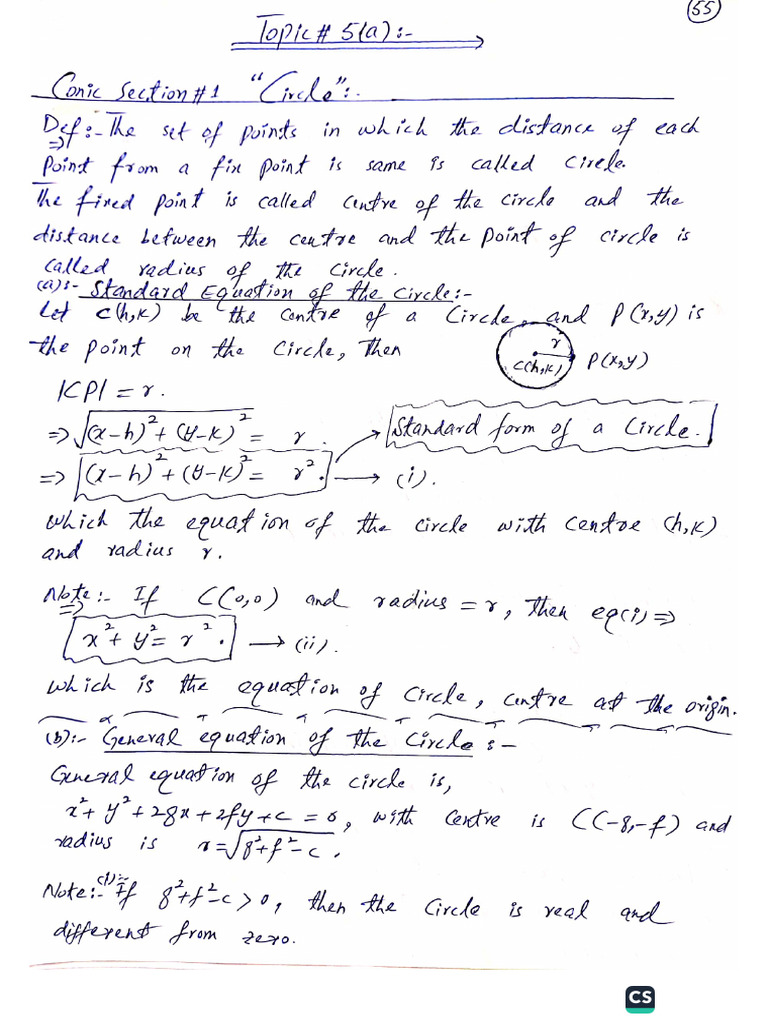 55
Topic# 5(a):-
Conic Section#1 "Circle":-
Def:- The set of points in which the distance of each
⇒
Point from a fix point is same is called circle.
The fixed point is called centre of the circle and the
distance between the centre and the point of circle is
called radius of the circle.
(a):- Standard Equation of the Circle:-
Let C(h,k) be the centre of a circle, and P(x,y) is
the point on the circle, then
r
C(h,k) P(x,y)
|CP| = r.
⇒ √(x-h)²+(y-k)² = r.
Standard form of a Circle.
⇒ (x-h)²+(y-k)² = r². → (i).
which the equation of the circle with centre (h,k)
and radius r.
Note:- If C(0,0) and radius = r, then eq(i) ⇒
⇒
x²+y²=r². → (ii).
which is the equation of circle, centre at the origin.
(b):- General equation of the Circle:-
General equation of the circle is,
x²+y²+2gx+2fy+c=0, with centre is C(-g,-f) and
radius is r=√g²+f²-c.
Note:- (1):- If g²+f²-c>0, then the circle is real and
different from zero.
CS